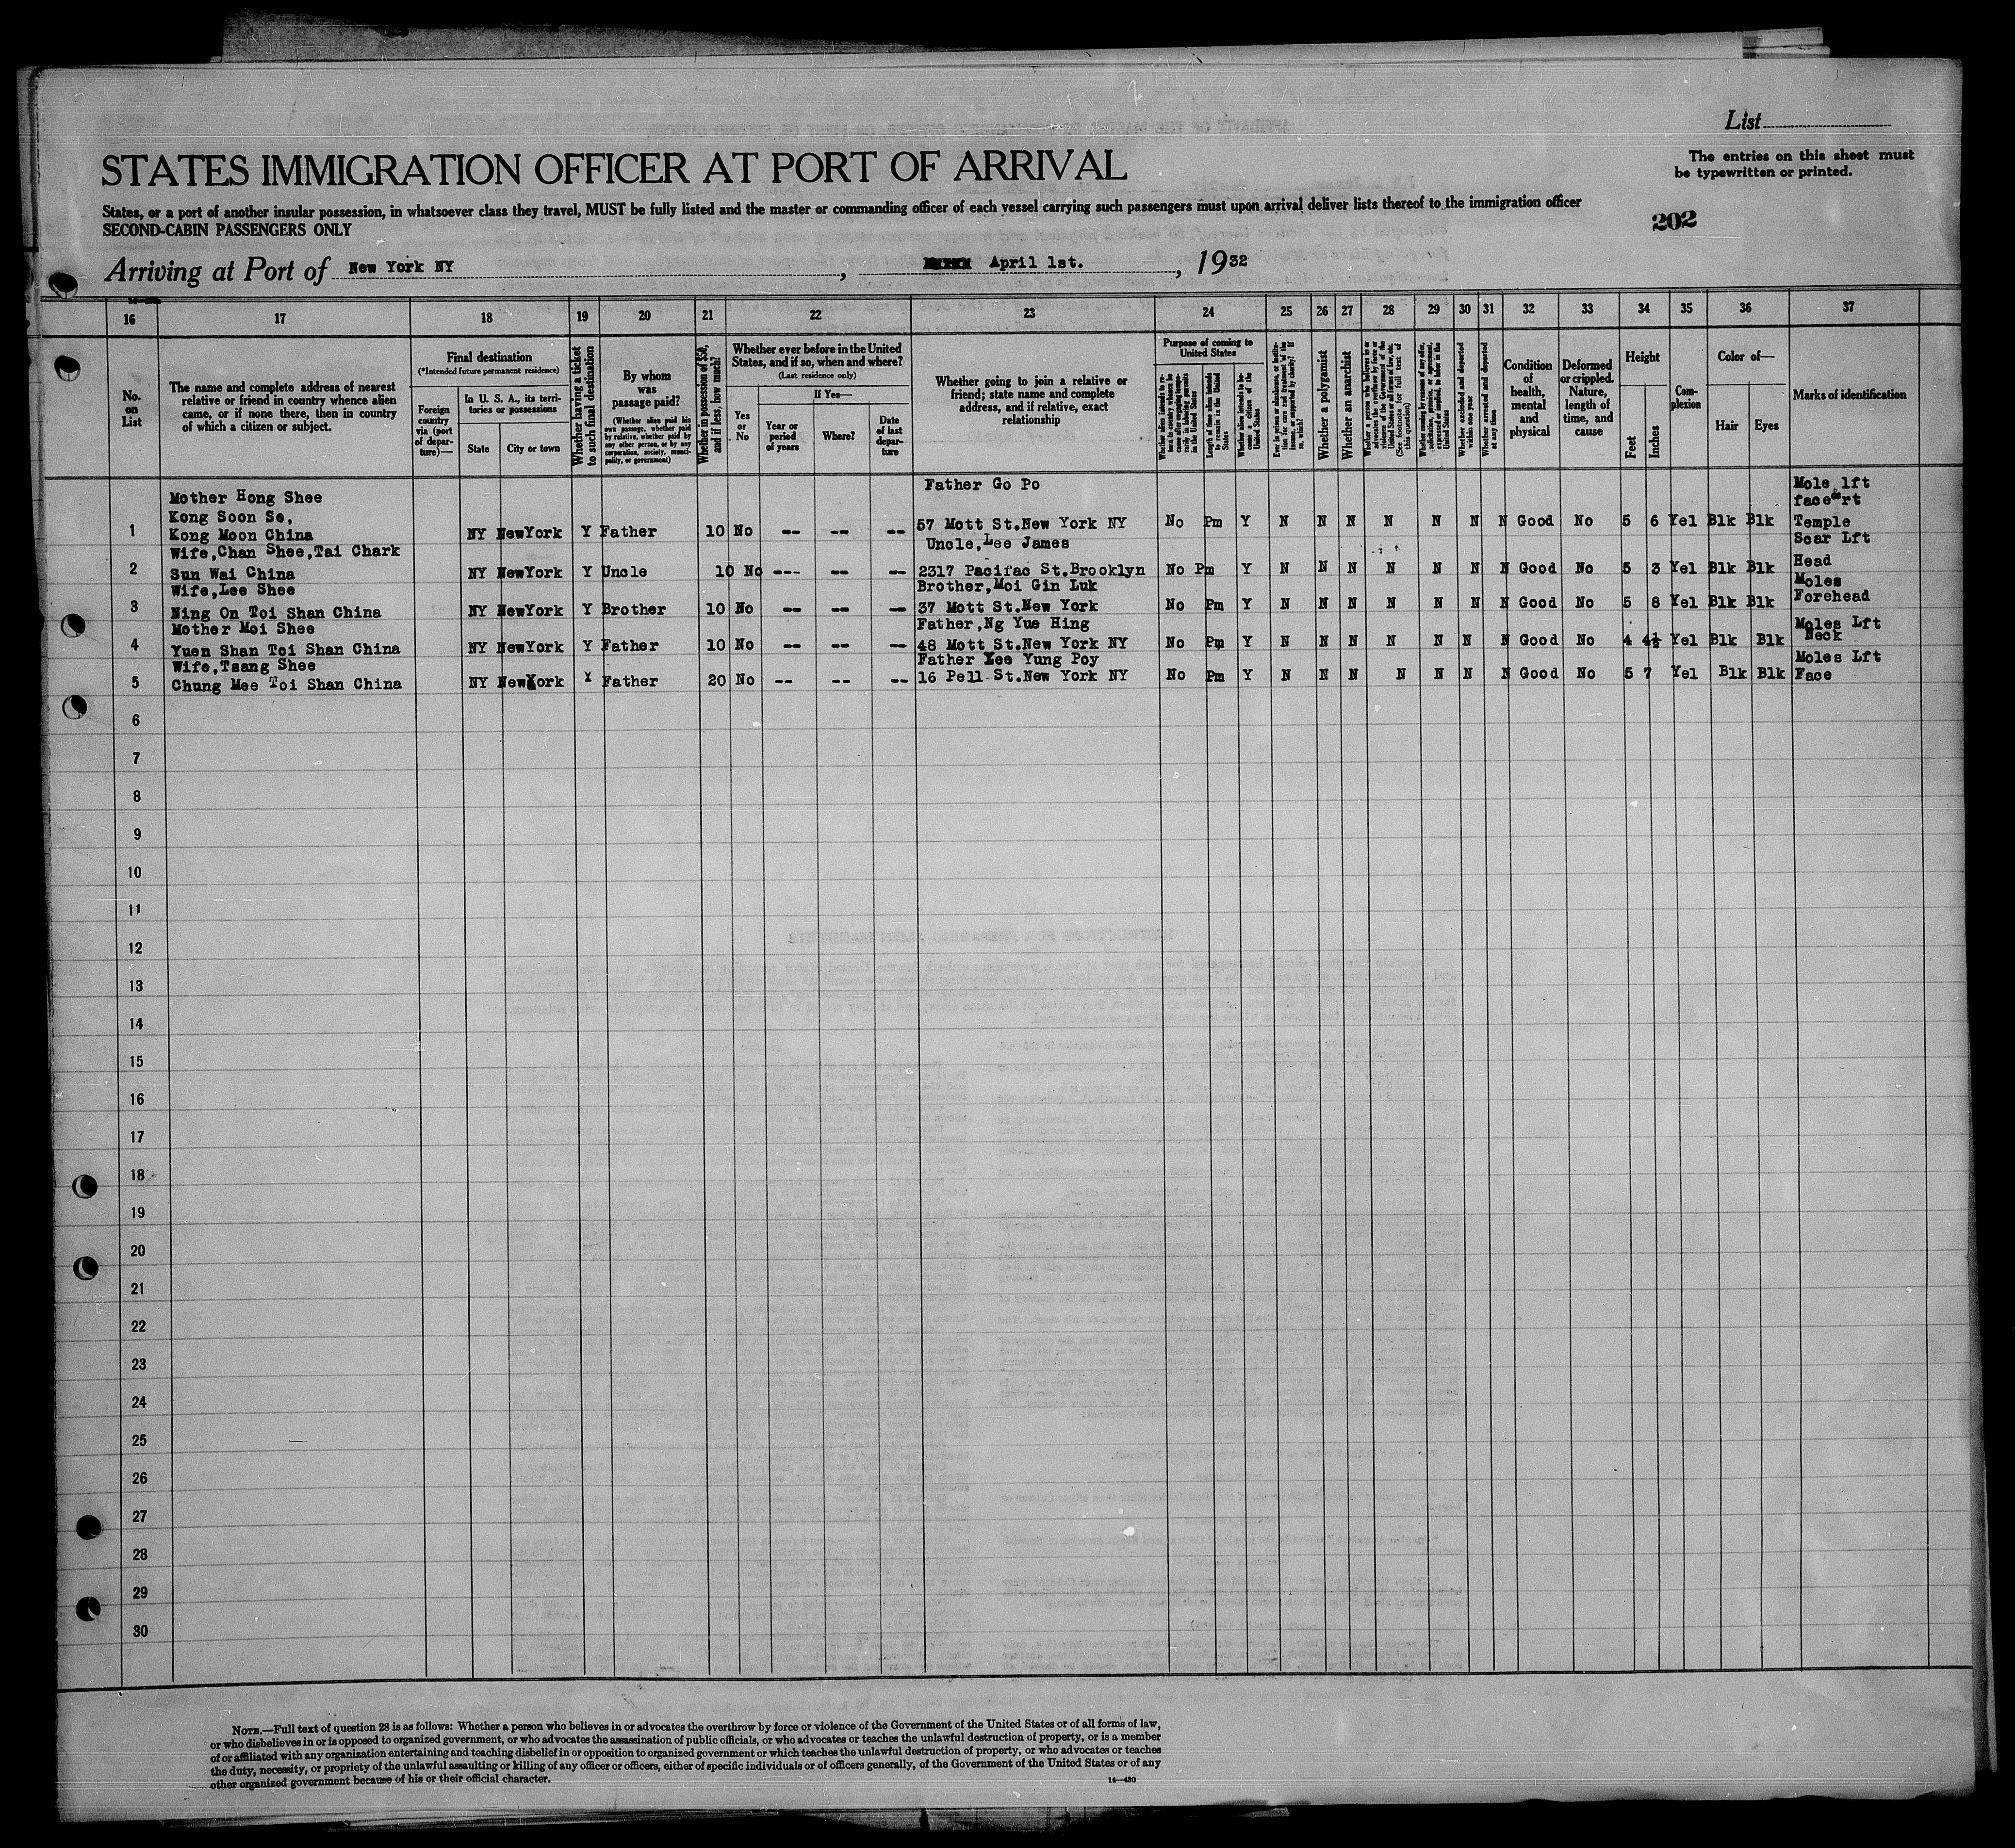 List
The entries on this sheet must
be typewritten or printed.
STATES IMMIGRATION OFFICER AT PORT OF ARRIVAL
States, or a port of another insular possession, in whatsoever class they travel, MUST be fully listed and the master or commanding officer of each vessel carrying such passengers must upon arrival deliver lists thereof to the immigration officer
SECOND-CABIN PASSENGERS ONLY
202
Arriving at Port of New York NY, April 1st., 1932
16 17 18 19 20 21 22 23 24 25 26 27 28 29 30 31 32 33 34 35 36 37
No. on List
The name and complete address of nearest
relative or friend in country whence alien
came, or if none there, then in country
of which a citizen or subject.
Final destination
(*Intended future permanent residence)
Foreign country via (port of departure)—
In U. S. A., its territories or possessions
State
City or town
Whether having a ticket to such final destination
By whom was passage paid?
(Whether alien paid his own passage, whether paid by relative, whether paid by any other person, or by any corporation, society, municipality, or government)
Whether in possession of $50, and if less, how much?
Whether ever before in the United
States, and if so, when and where?
(Last residence only)
Yes or No
If Yes—
Year or period of years
Where?
Date of last departure
Whether going to join a relative or
friend; state name and complete
address, and if relative, exact
relationship
Purpose of coming to United States
Length of time alien intends to remain in the United States
Whether alien intends to become a citizen of the United States
Whether a polygamist
Whether an anarchist
(See footnote for full text of this question)
Whether excluded and deported within one year
Whether arrested and deported at any time
Condition of health, mental and physical
Deformed or crippled. Nature, length of time, and cause
Height
Feet
Inches
Complexion
Color of—
Hair
Eyes
Marks of identification
Mother Hong Shee Father Go Po Mole lft
Kong Soon Se, face rt
1 Kong Moon China NY NewYork Y Father 10 No -- -- -- 57 Mott St.New York NY No Pm Y N N N N N N N Good No 5 6 Yel Blk Blk Temple
Wife,Chan Shee,Tai Chark Uncle,Lee James Scar Lft
2 Sun Wai China NY NewYork Y Uncle 10 No --- -- -- 2317 Pacifac St.Brooklyn No Pm Y N N N N N N N Good No 5 3 Yel Blk Blk Head
Wife,Lee Shee Brother,Moi Gin Luk Moles
3 Ning On Toi Shan China NY NewYork Y Brother 10 No -- -- -- 37 Mott St.New York No Pm Y N N N N N N N Good No 5 8 Yel Blk Blk Forehead
Mother Moi Shee Father,Ng Yue Hing Moles Lft
4 Yuen Shan Toi Shan China NY NewYork Y Father 10 No -- -- -- 48 Mott St.New York NY No Pm Y N N N N N N N Good No 4 4½ Yel Blk Blk Neck
Wife,Tsang Shee Father Lee Yung Poy Moles Lft
5 Chung Mee Toi Shan China NY NewYork Y Father 20 No -- -- -- 16 Pell St.New York NY No Pm Y N N N N N N N Good No 5 7 Yel Blk Blk Face
6
7
8
9
10
11
12
13
14
15
16
17
18
19
20
21
22
23
24
25
26
27
28
29
30
NOTE.—Full text of question 28 is as follows: Whether a person who believes in or advocates the overthrow by force or violence of the Government of the United States or of all forms of law,
or who disbelieves in or is opposed to organized government, or who advocates the assassination of public officials, or who advocates or teaches the unlawful destruction of property, or is a member
of or affiliated with any organization entertaining and teaching disbelief in or opposition to organized government or which teaches the unlawful destruction of property, or who advocates or teaches
the duty, necessity, or propriety of the unlawful assaulting or killing of any officer or officers, either of specific individuals or of officers generally, of the Government of the United States or of any
other organized government because of his or their official character.
14—480